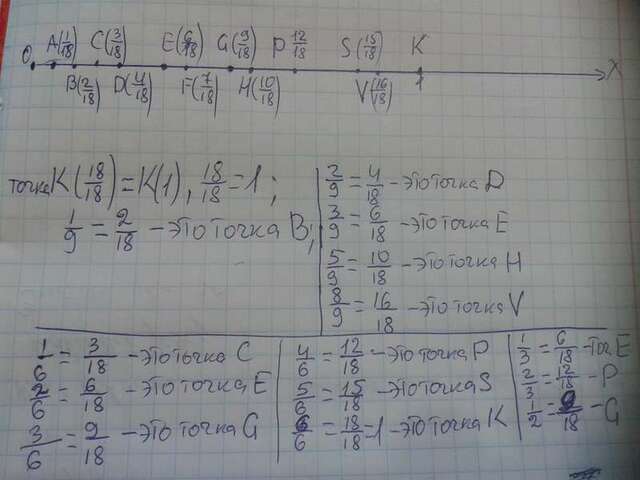 O A(1/18) C(3/18) E(6/18) G(9/18) P 12/18 S(15/18) K
B(2/18) D(4/18) F(7/18) H(10/18) V(16/18) 1 X
точка K(18/18)=K(1), 18/18=1;
1/9=2/18 - это точка B;
2/9=4/18 - это точка D
3/9=6/18 - это точка E
5/9=10/18 - это точка H
8/9=16/18 - это точка V
1/6=3/18 - это точка C
2/6=6/18 - это точка E
3/6=9/18 - это точка G
4/6=12/18 - это точка P
5/6=15/18 - это точка S
6/6=18/18=1 - это точка K
1/3=6/18 - точ. E
2/3=12/18 - P
1/2=9/18 - G